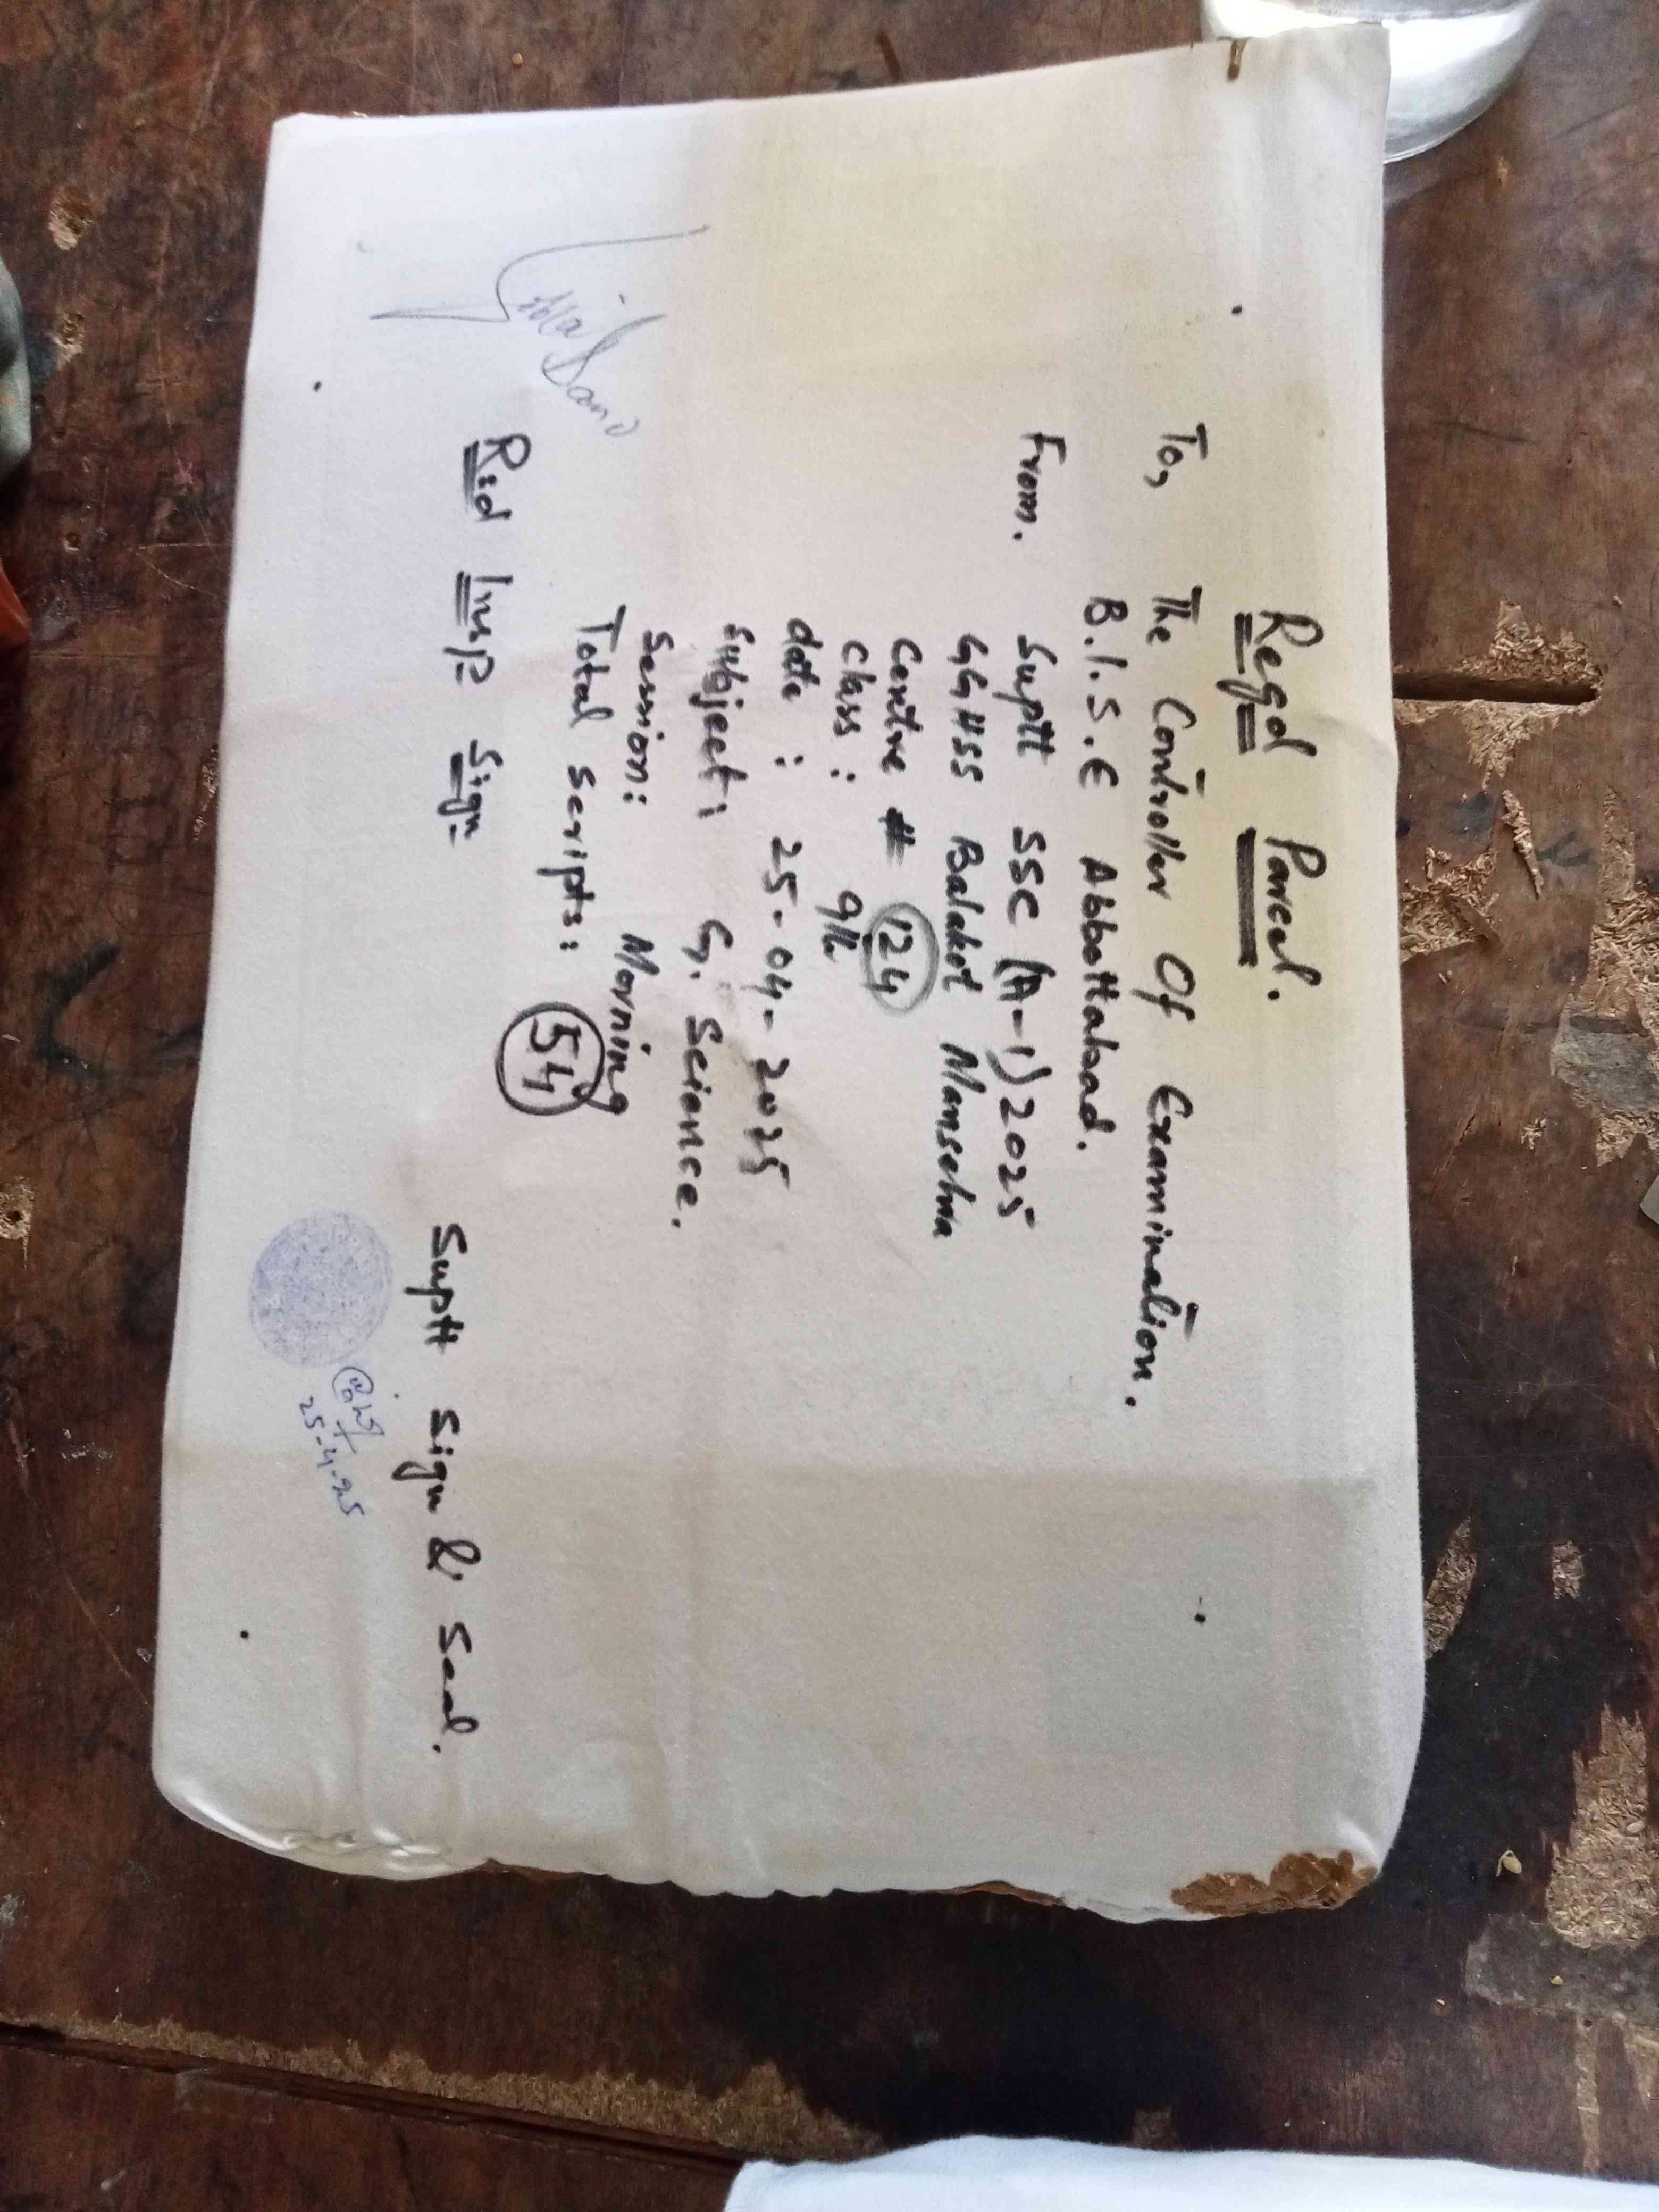 Regd Parcel.
To, The Controller Of Examination.
B.I.S.E Abbottabad.
From. Suptt SSC (A-1) 2025
GGHSS Balakot Mansehra
Centre # 124
class : 9th
date : 25-04-2025
Subject: G. Science.
Session: Morning
Total scripts: 54
R.d Insp Sign
Suptt Sign & Seal.
25-4-25